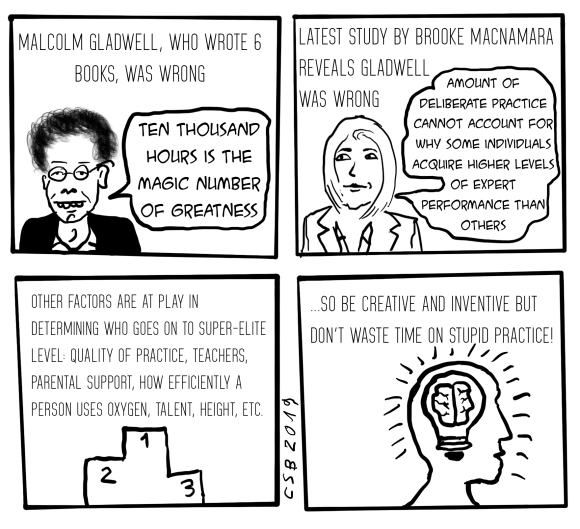 MALCOLM GLADWELL, WHO WROTE 6
BOOKS, WAS WRONG
TEN THOUSAND
HOURS IS THE
MAGIC NUMBER
OF GREATNESS
LATEST STUDY BY BROOKE MACNAMARA
REVEALS GLADWELL
WAS WRONG
AMOUNT OF
DELIBERATE PRACTICE
CANNOT ACCOUNT FOR
WHY SOME INDIVIDUALS
ACQUIRE HIGHER LEVELS
OF EXPERT
PERFORMANCE THAN
OTHERS
OTHER FACTORS ARE AT PLAY IN
DETERMINING WHO GOES ON TO SUPER-ELITE
LEVEL: QUALITY OF PRACTICE, TEACHERS,
PARENTAL SUPPORT, HOW EFFICIENTLY A
PERSON USES OXYGEN, TALENT, HEIGHT, ETC.
1
2
3
CSB2019
...SO BE CREATIVE AND INVENTIVE BUT
DON'T WASTE TIME ON STUPID PRACTICE!